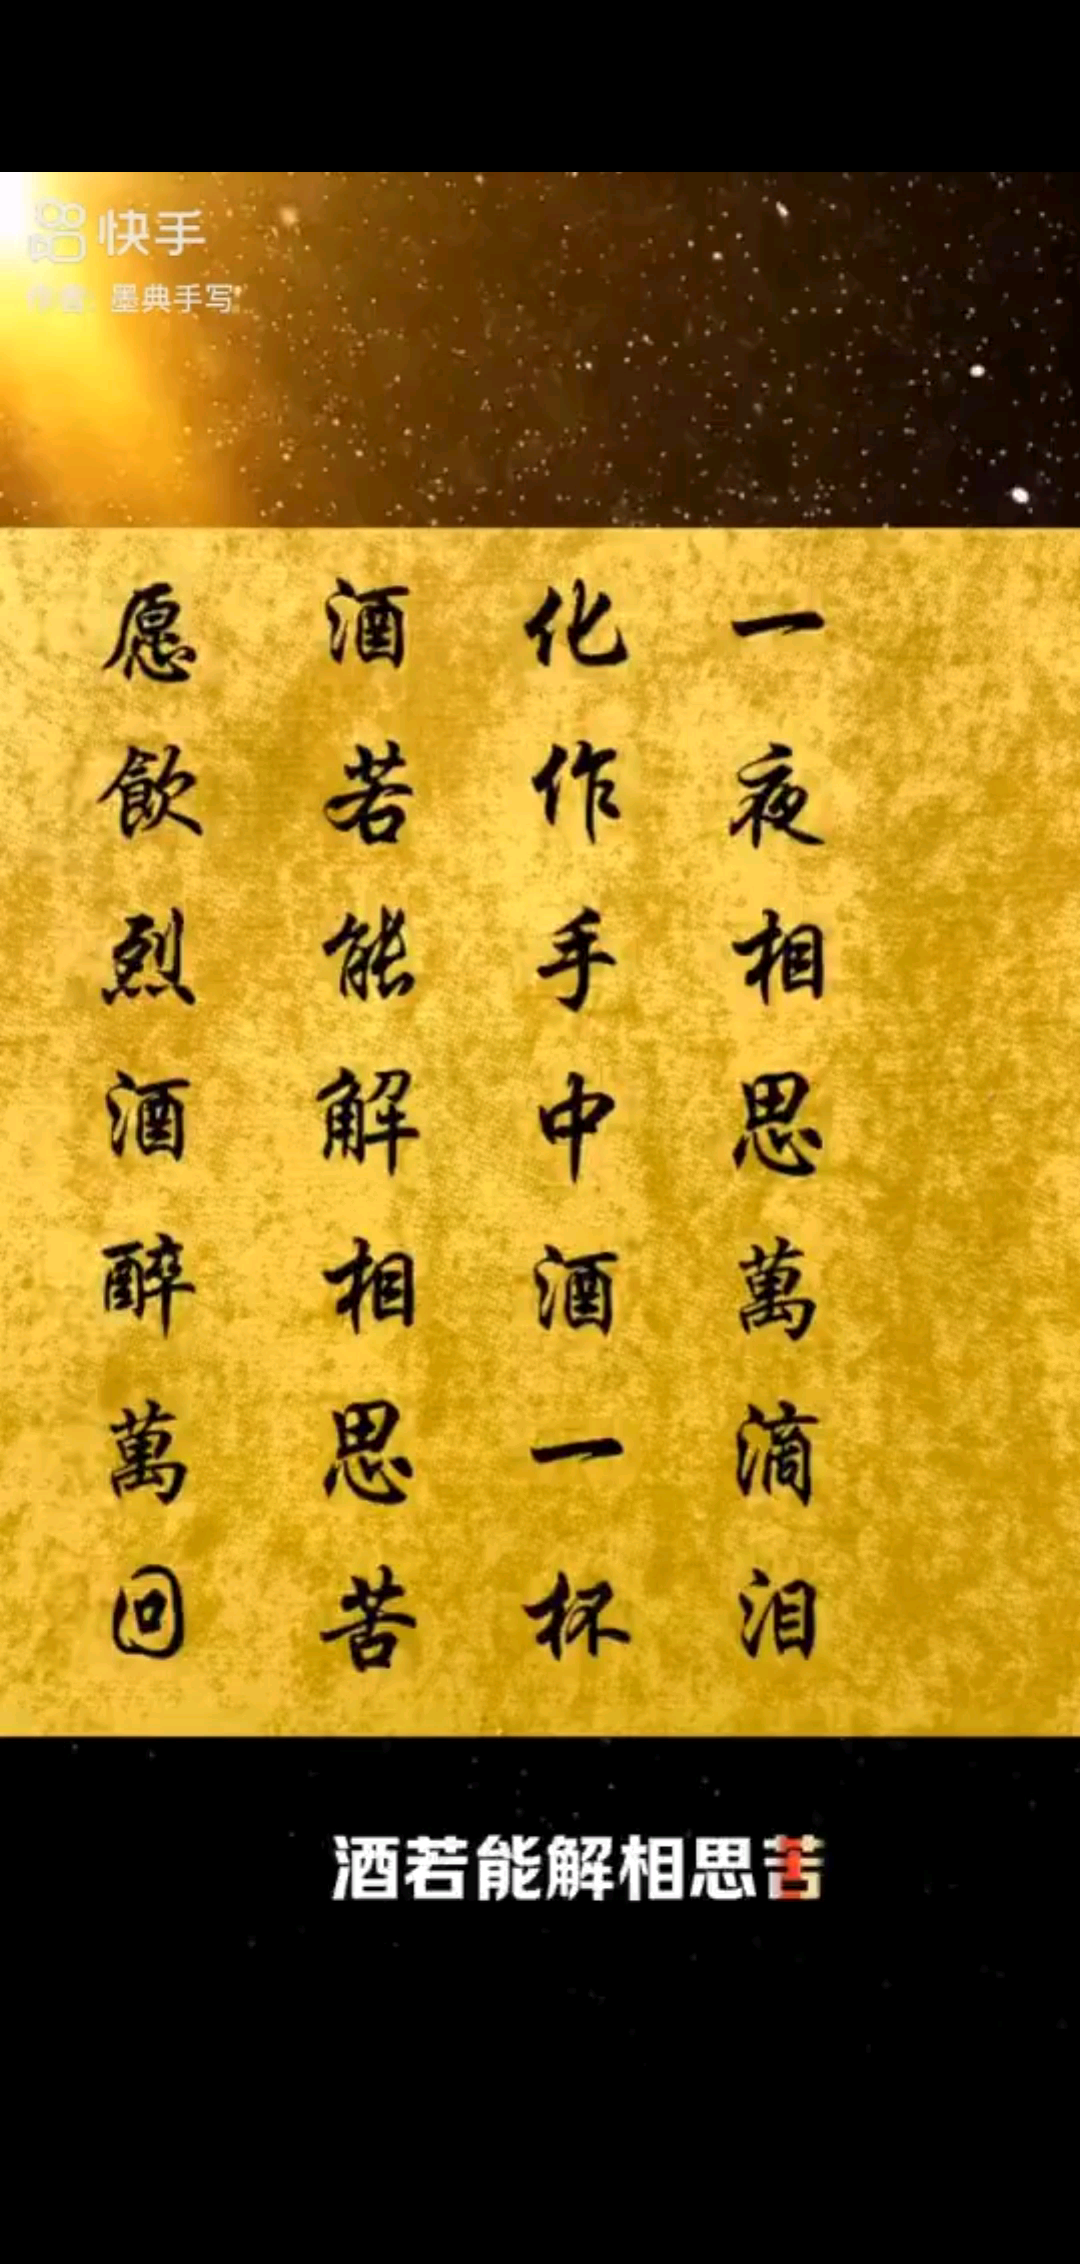 快手
作者：墨典手写
一夜相思萬滴泪
化作手中酒一杯
酒若能解相思苦
愿飲烈酒醉萬回
酒若能解相思苦